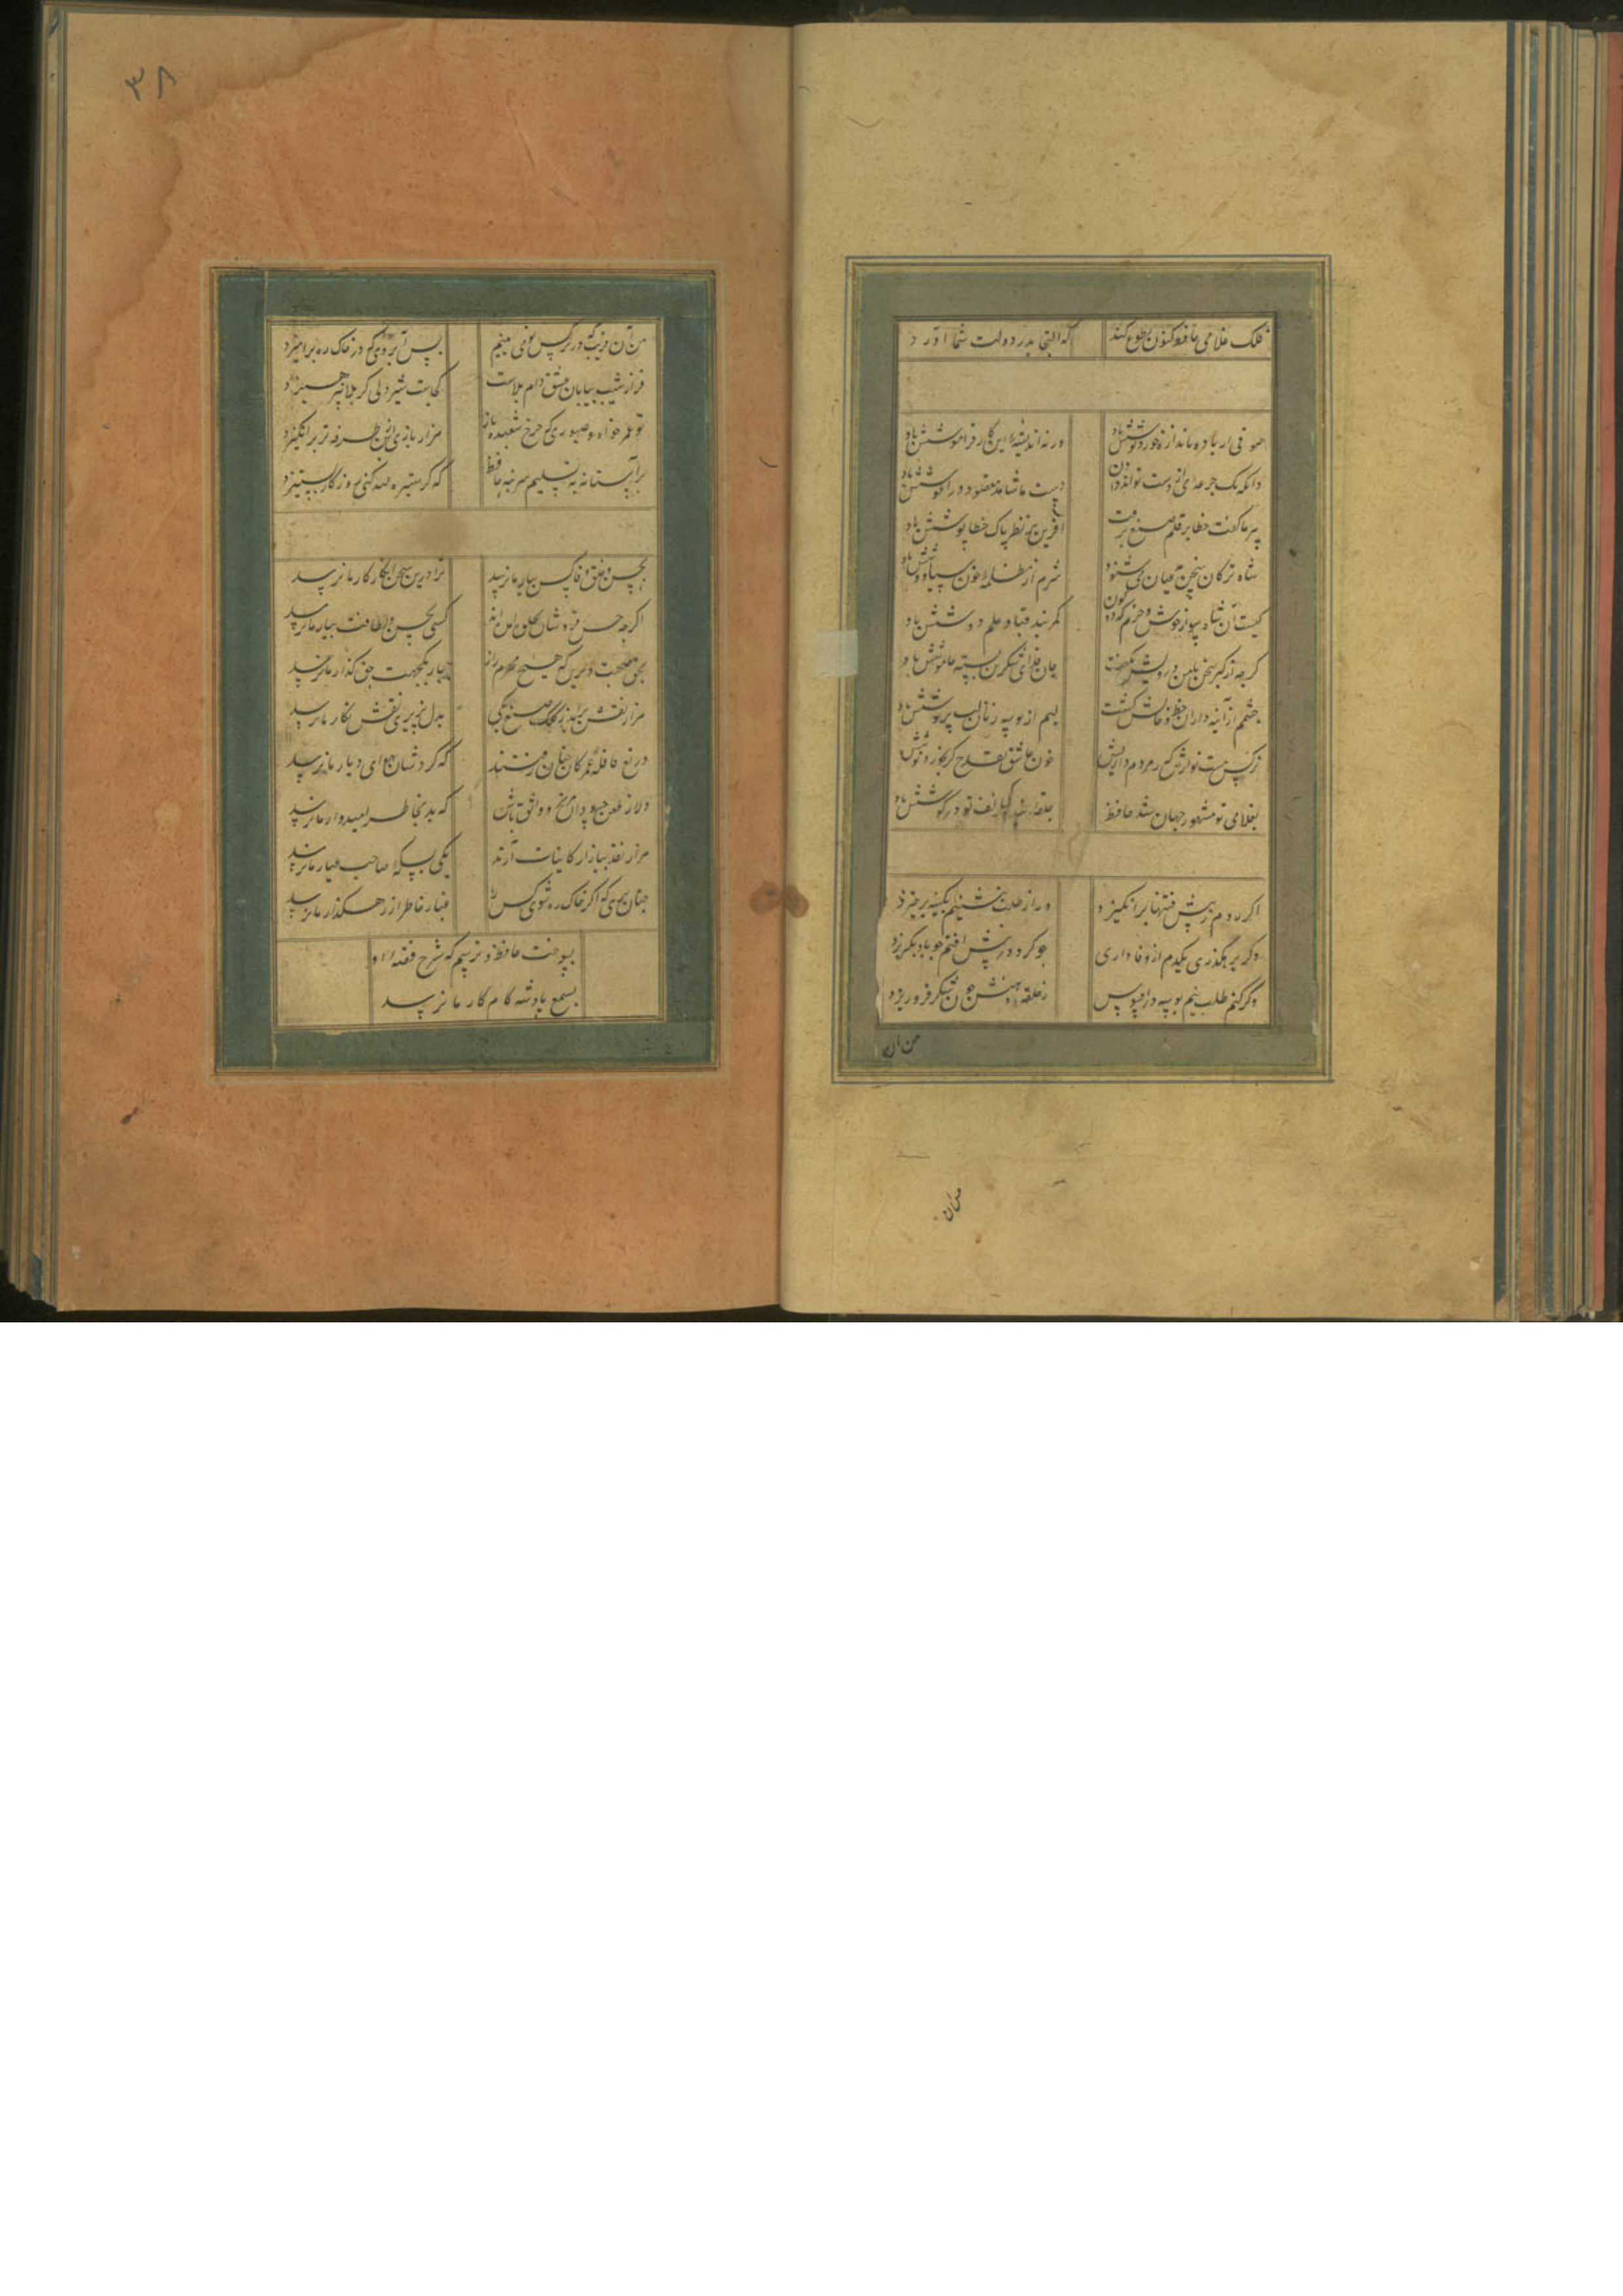 فلک غلامی حافظ کنون بطوع کند
که التجا بدر دولت شما آورد
صوفی ار باده باندازه خورد نوشش باد
ورنه اندیشه این کار فراموشش باد
وانکه یک جرعه می از دست تواند دادن
دست با شاهد مقصود در آغوشش باد
پیر ما گفت خطا بر قلم صنع نرفت
آفرین بر نظر پاک خطا پوشش باد
شاه ترکان سخن مدعیان می شنود
شرم از مظلمه خون سیاووشش باد
کیست آن شاه سوار خوش و خرم که دو کون
کمر بند قبا و علم دوشش باد
کرچه از کبر سخن با من درویش نگفت
جان فدای شکرین پسته خاموشش باد
چشمم از آینه داران خط و خالش کشت
لبم از بوسه ربایان لب نوشش باد
نرکس مست نوازش کن مردم دارش
خون عاشق بقدح کر بخورد نوشش باد
بغلامی تو مشهور جهان شد حافظ
حلقه بندگی زلف تو در کوشش باد
اکر روم ز پیش فتنها برانکیزد
ور از طلب بنشینم بکینه برخیزد
وکر برهکذری یکدم از وفاداری
چو کرد در پیش افتم چو باد بکریزد
وکر کنم طلب نیم بوسه در افسوس
ز حقه دهنش چون شکر فرو ریزد
من آن
من آن
۳۸
من آن فریب که در نرکس تو می بینم
بس آبروی که در خاک ره برآمیزد
فراز شیب بیابان عشق دام بلاست
کجاست شیردلی کز بلا نپرهیزد
تو عمر خواه و صبوری که چرخ شعبده باز
هزار بازی ازین طرفه تر برانکیزد
بر آستانه تسلیم سر بنه حافظ
که کر ستیزه کنی روزکار بستیزد
بحسن و خلق و وفا کس بیار ما نرسد
ترا درین سخن انکار کار ما نرسد
اکرچه حسن فروشان بجلوه آمده اند
کسی بحسن و لطافت بیار ما نرسد
بحق صحبت دیرین که هیچ محرم راز
بیار یکجهت حق کذار ما نرسد
هزار نقش برآید ز کلک صنع یکی
بدلپذیری نقش نکار ما نرسد
دریغ قافله عمر کان چنان رفتند
که کردشان بهوای دیار ما نرسد
دلا ز طعن حسودان مرنج و واثق باش
که بد بخاطر امیدوار ما نرسد
هزار نقد ببازار کاینات آرند
یکی بسکه صاحب عیار ما نرسد
چنان بزی که اکر خاک ره شوی کس را
غبار خاطر از رهکذار ما نرسد
بسوخت حافظ و ترسم که شرح قصه او
بسمع پادشه کامکار ما نرسد